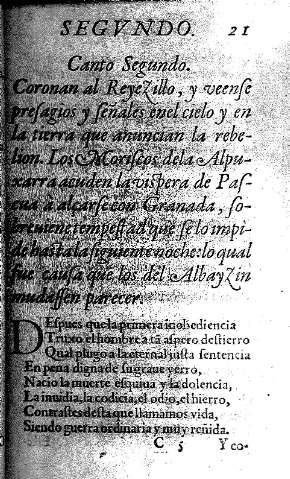 SEGVNDO. 21
Canto Segundo.
Coronan al Reyezillo, y veense
presagios y señales enel cielo y en
la tierra que anuncian la rebe-
lion. Los Moriscos dela Alpu-
xarra acuden la vispera de Pas-
cua a alçarse con Granada, so-
breuiene tempestad que se lo impi-
de hasta la siguiente noche: lo qual
fue causa que los del Albayzin
mudassen parecer.
DEspues que la primera inobediencia
Truxo el hombre a tã aspero destierro
Qual plugo a la eternal justa sentencia
En pena digna de su graue yerro,
Nacio la muerte esquiua y la dolencia,
La inuidia, la codicia, el odio, el hierro,
Contrastes desta que llamamos vida,
Siendo guerra ordinaria y muy reñida.
C 5 Y co-